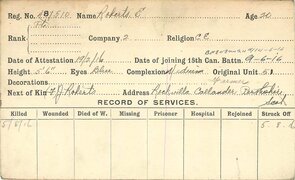 Reg. No. Name Roberts S Age 20
Rank Pte Company 2 Religion C.E.
Date of Attestation 19/2/16 Date of joining 15th Can. Battn. 9-6-16
Height 5'6" Eyes Blue Complexion Medium Original Unit 51
Decorations
Next of Kin J Roberts Address Rockvilla Callander, Perthshire
Scot
RECORD OF SERVICES.
Killed Wounded Died of W. Missing Prisoner Hospital Rejoined Struck Off